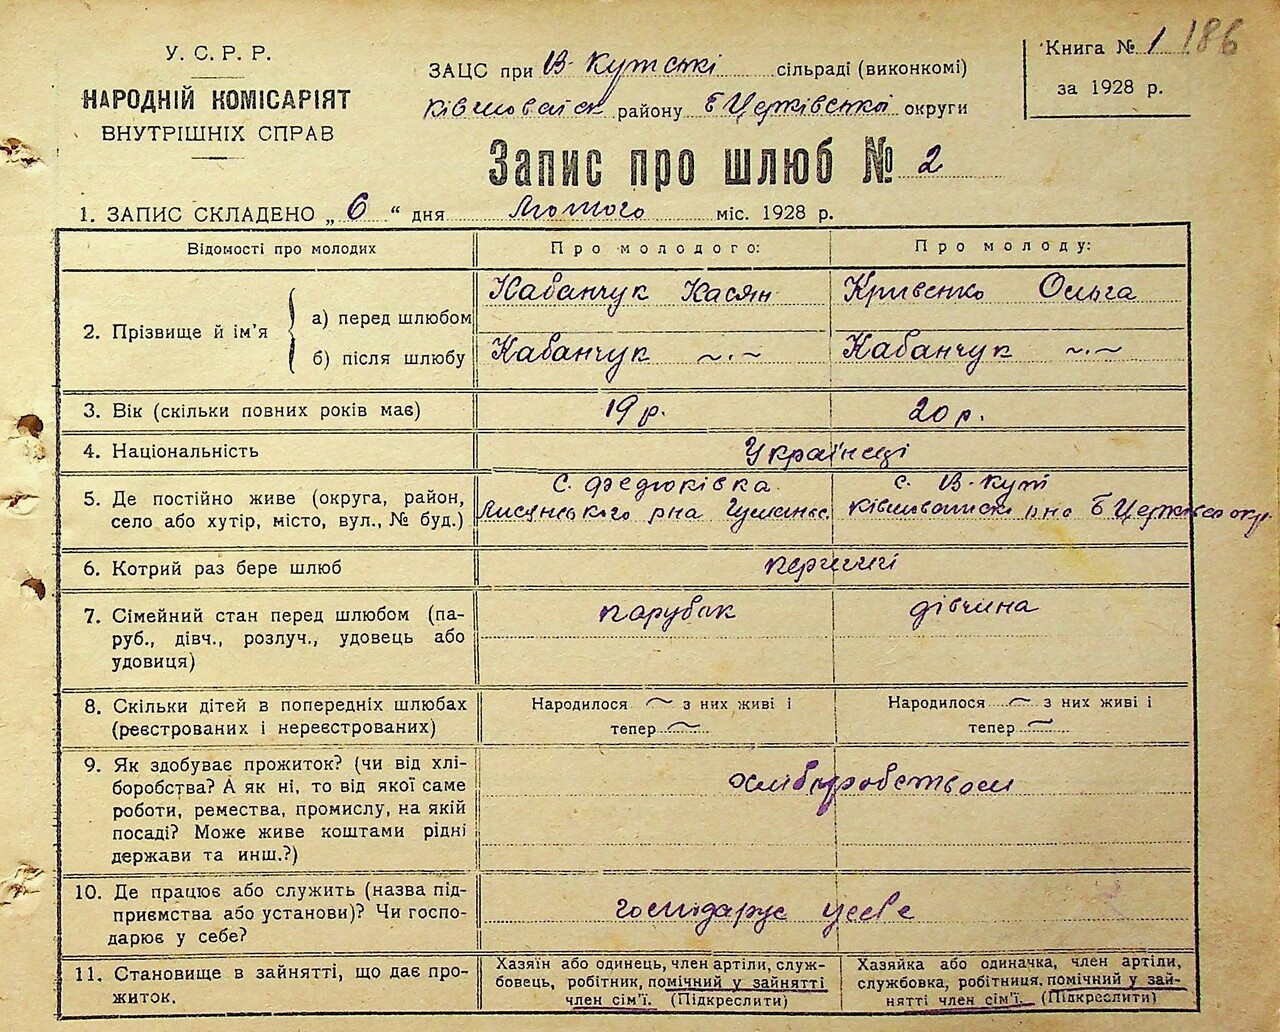 У. С. Р. Р.
НАРОДНІЙ КОМІСАРІЯТ
ВНУТРІШНІХ СПРАВ
ЗАЦС при В-Кутській сільраді (виконкомі)
Ківшоватськ району Б Церківської округи
Книга № 1 186
за 1928 р.
Запис про шлюб № 2
1. ЗАПИС СКЛАДЕНО „ 6 “ дня Лютого міс. 1928 р.
Відомості про молодих
Про молодого:
Про молоду:
2. Прізвище й ім’я
а) перед шлюбом
Кабанчук Касян
Кривенко Ольга
б) після шлюбу
Кабанчук ~.~
Кабанчук ~.~
3. Вік (скільки повних років має)
19 р.
20 р.
4. Національність
Українеці
5. Де постійно живе (округа, район,
село або хутір, місто, вул., № буд.)
с. Федюківка
Лисянського рна Гуманс.
с. В-Кути
Ківшоватськ рна Б Церківсь окр.
6. Котрий раз бере шлюб
перший
7. Сімейний стан перед шлюбом (па-
руб., дівч., розлуч., удовець або
удовиця)
парубок
дівчина
8. Скільки дітей в попередніх шлюбах
(реєстрованих і нереєстрованих)
Народилося ~ з них живі і
тепер ~
Народилося ~ з них живі і
тепер ~
9. Як здобуває прожиток? (чи від хлі-
боробства? А як ні, то від якої саме
роботи, ремества, промислу, на якій
посаді? Може живе коштами рідні
держави та инш.?)
хліборобством
10. Де працює або служить (назва під-
приємства або установи)? Чи госпо-
дарює у себе?
господарує усебе
11. Становище в зайнятті, що дає про-
житок.
Хазяїн або одинець, член артілі, служ-
бовець, робітник, помічний у зайнятті
член сім’ї. (Підкреслити)
Хазяйка або одиначка, член артіли,
службовка, робітниця, помічний у зай-
нятті член сім’ї. (Підкреслити)